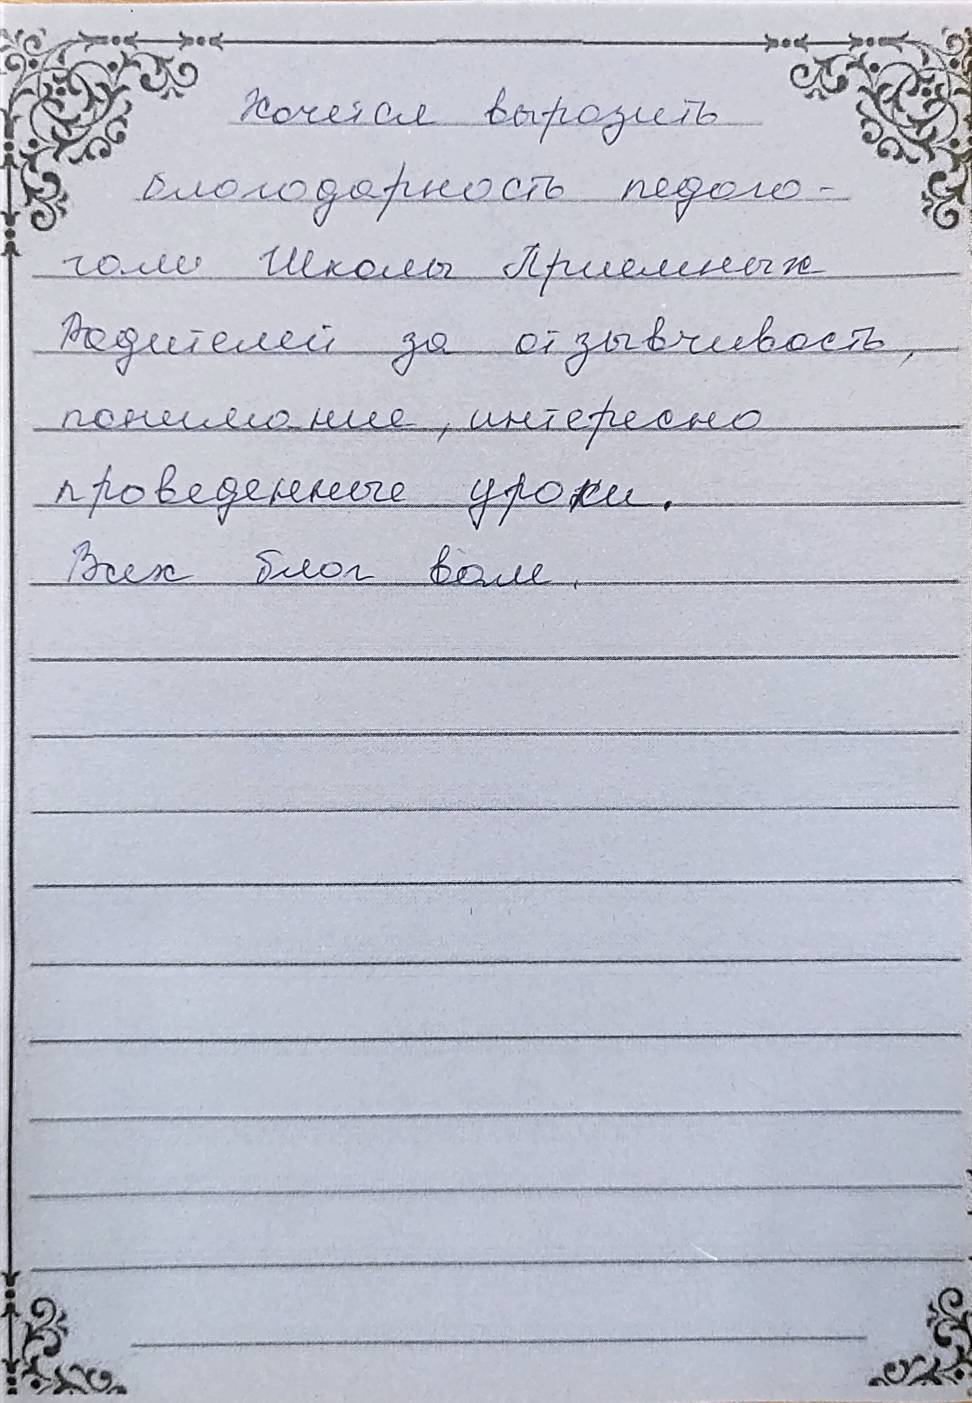 Хочется выразить
благодарность педаго-
гам Школы Приемных
Родителей за отзывчивость,
понимание, интересно
проведенные уроки.
Всех благ вам.